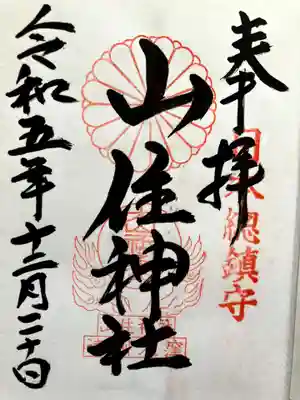 奉拝
日本總鎮守
山住神社
令和五年十二月二十日